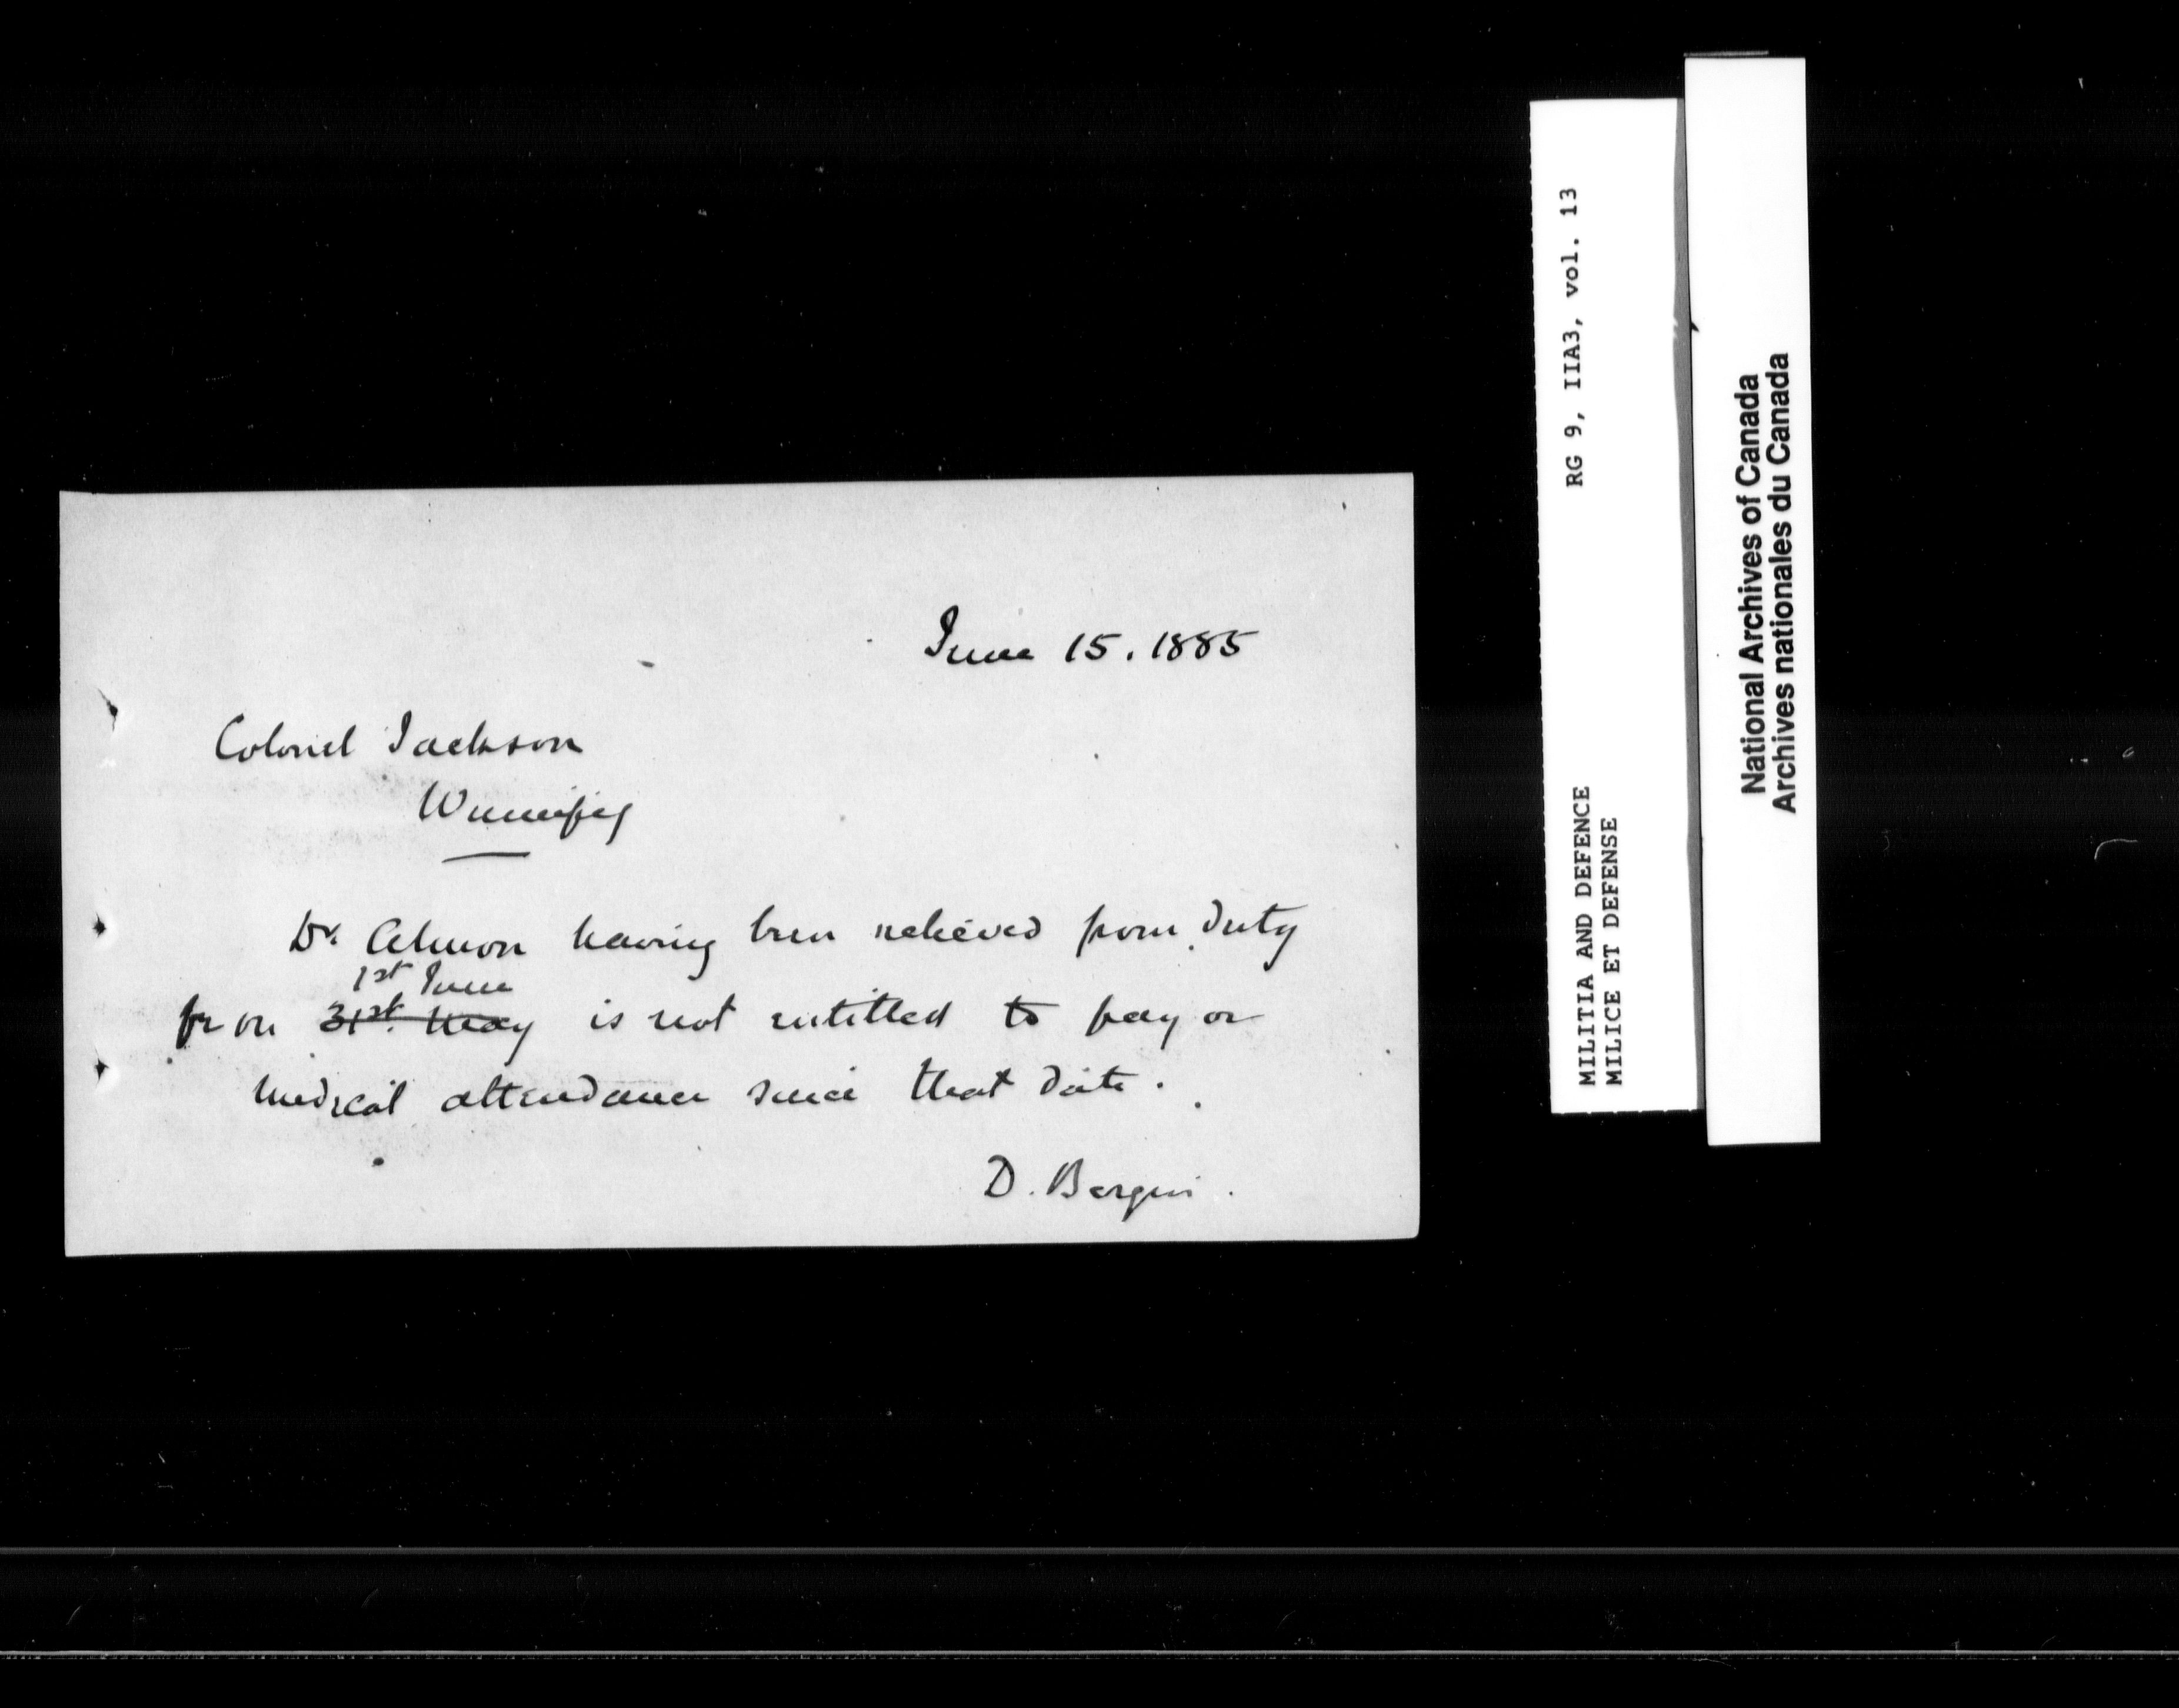 June 15. 1885
Colonel Jackson
Winnipeg
Dr. Almon having been relieved from duty
1st June
from 31st. May is not entitled to pay or
medical attendance since that date.
D. Bergin.
MILITIA AND DEFENCE RG 9, IIA3, vol. 13
MILICE ET DEFENSE
National Archives of Canada
Archives nationales du Canada